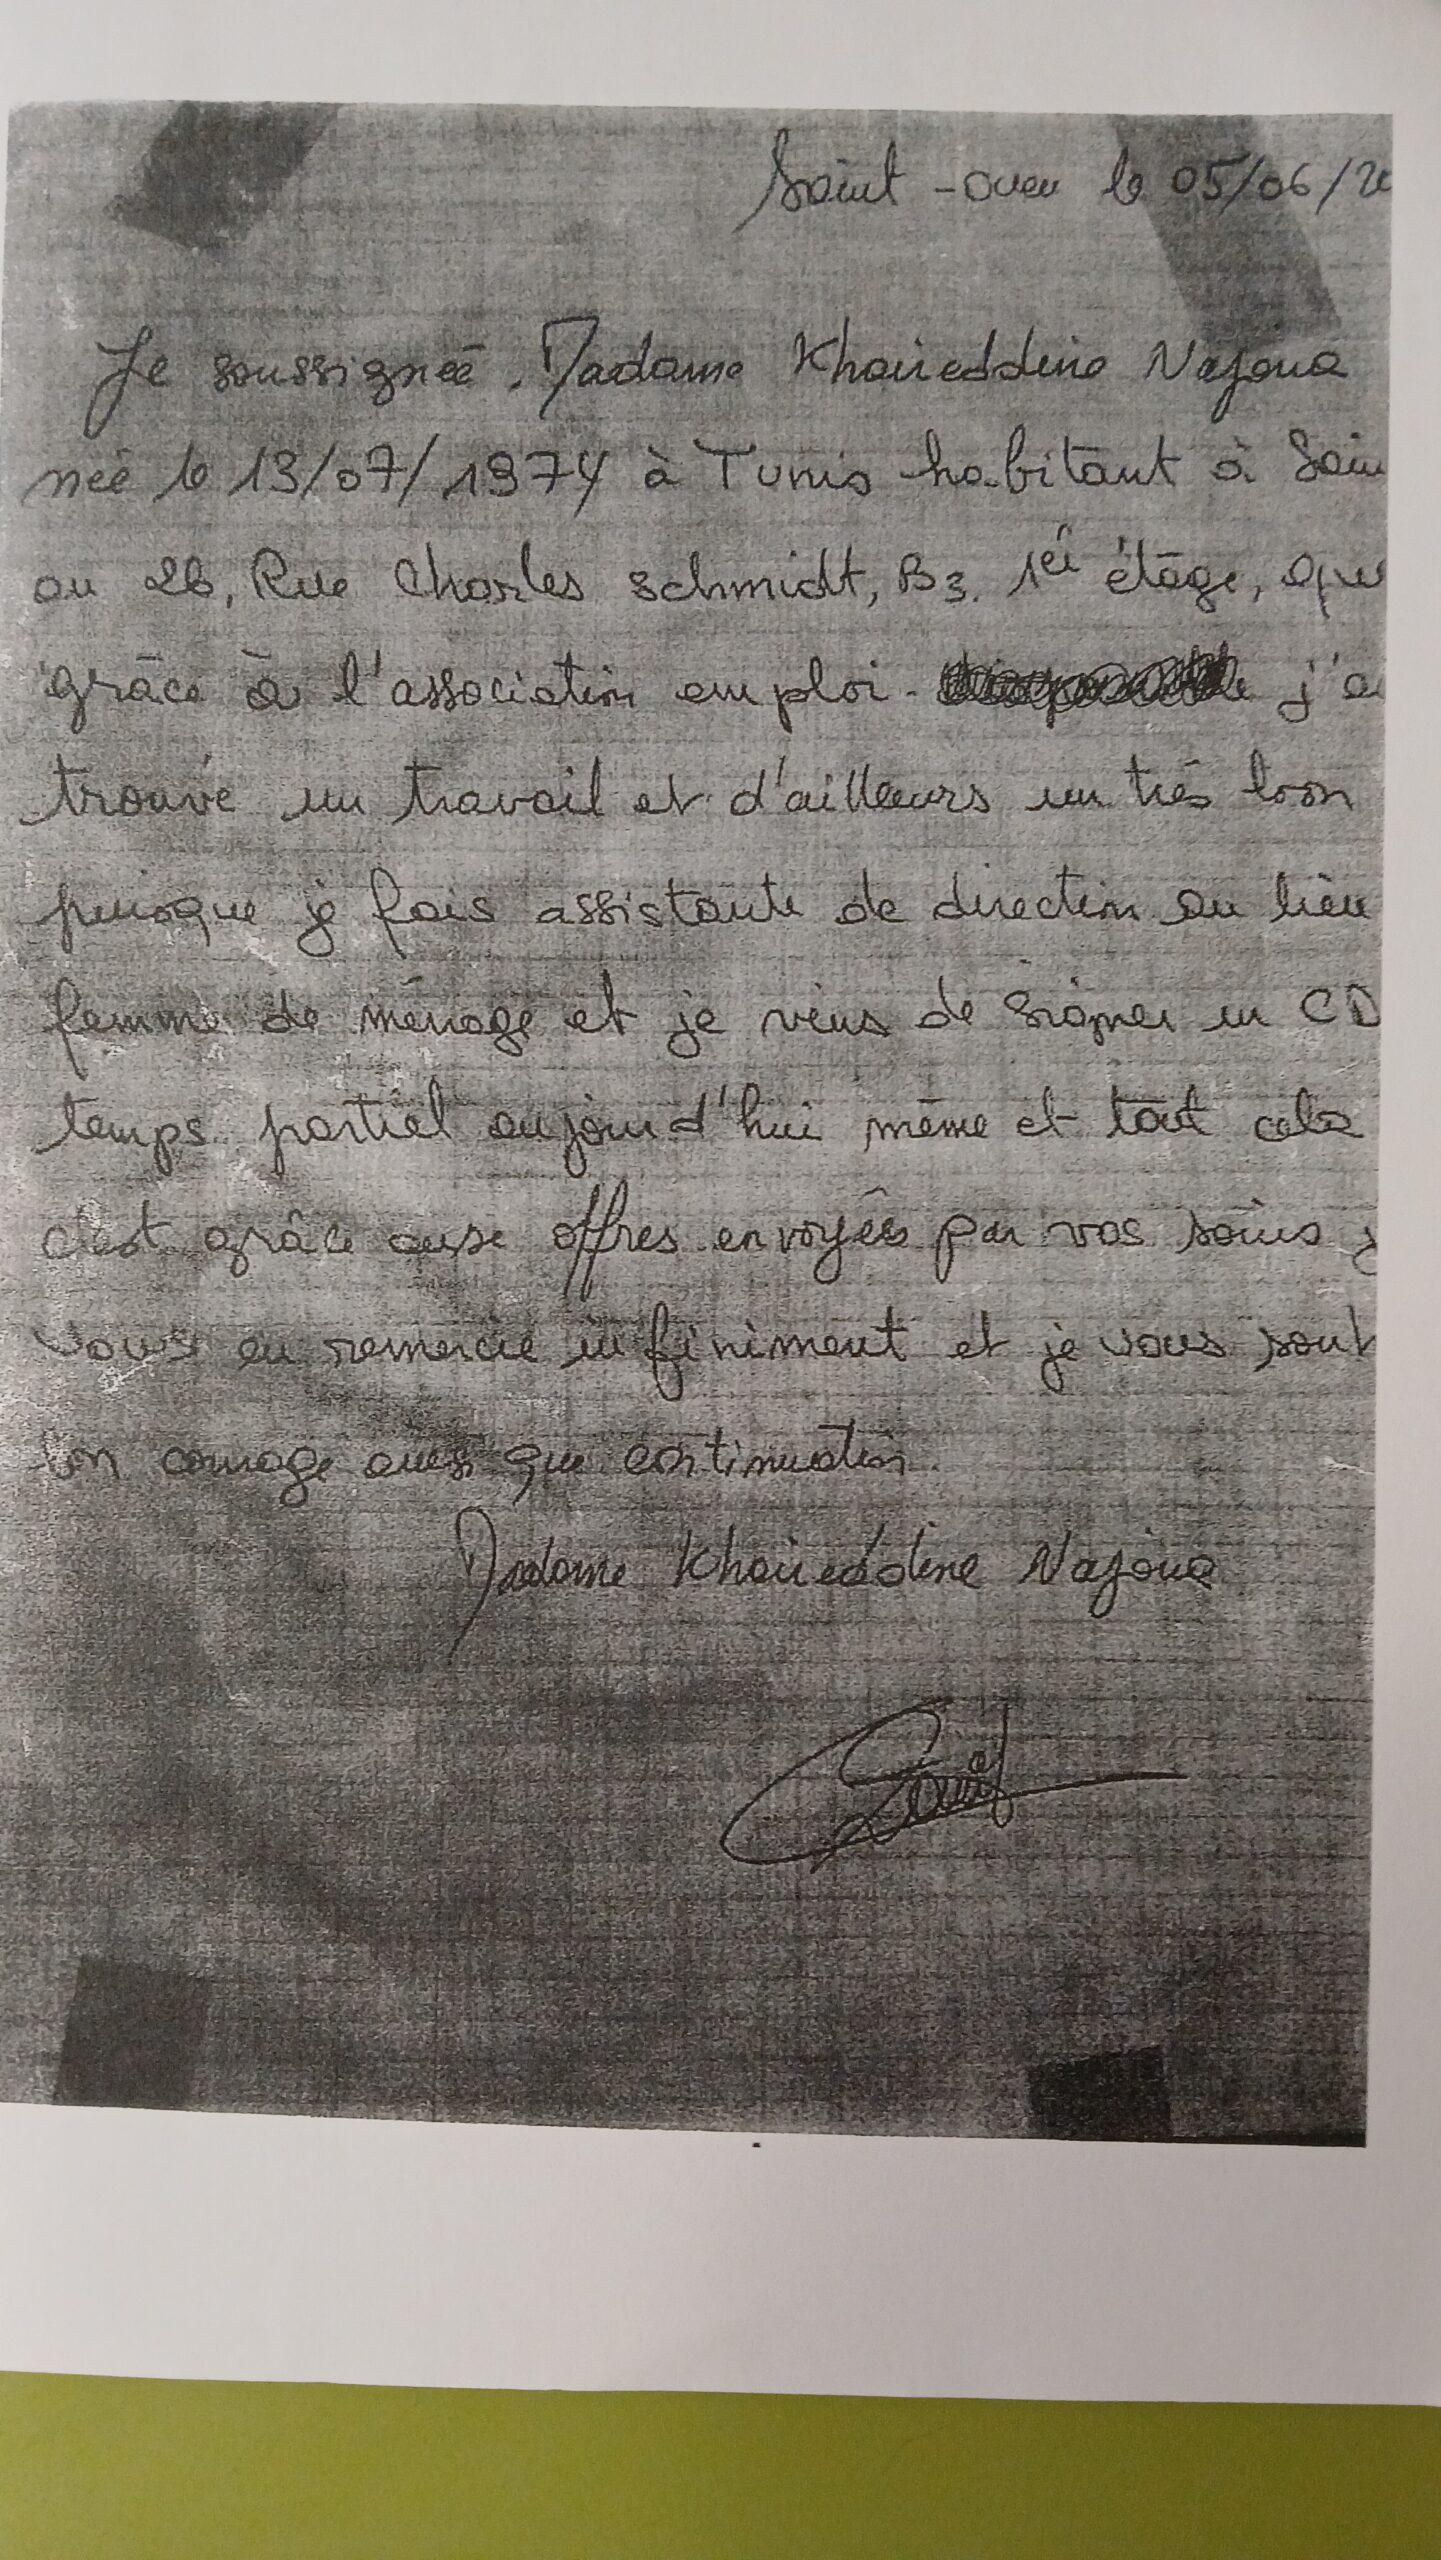 Saint-Ouen le 05/06/20
Je soussignée, Madame Khaireddine Najoua
née le 13/07/1974 à Tunis habitant à Sain
au 26, Rue Charles Schmidt, B3, 1er étage, que
grâce à l'association emploi j'ai
trouvé un travail et d'ailleurs un très bon
puisque je fais assistante de direction au lieu
femme de ménage et je viens de signer un CD
temps partiel aujourd'hui même et tout cela
c'est grâce aux offres envoyées par vos soins j
vous en remercie infiniment et je vous souh
bon courage ainsi que continuation.
Madame Khaireddine Najoua